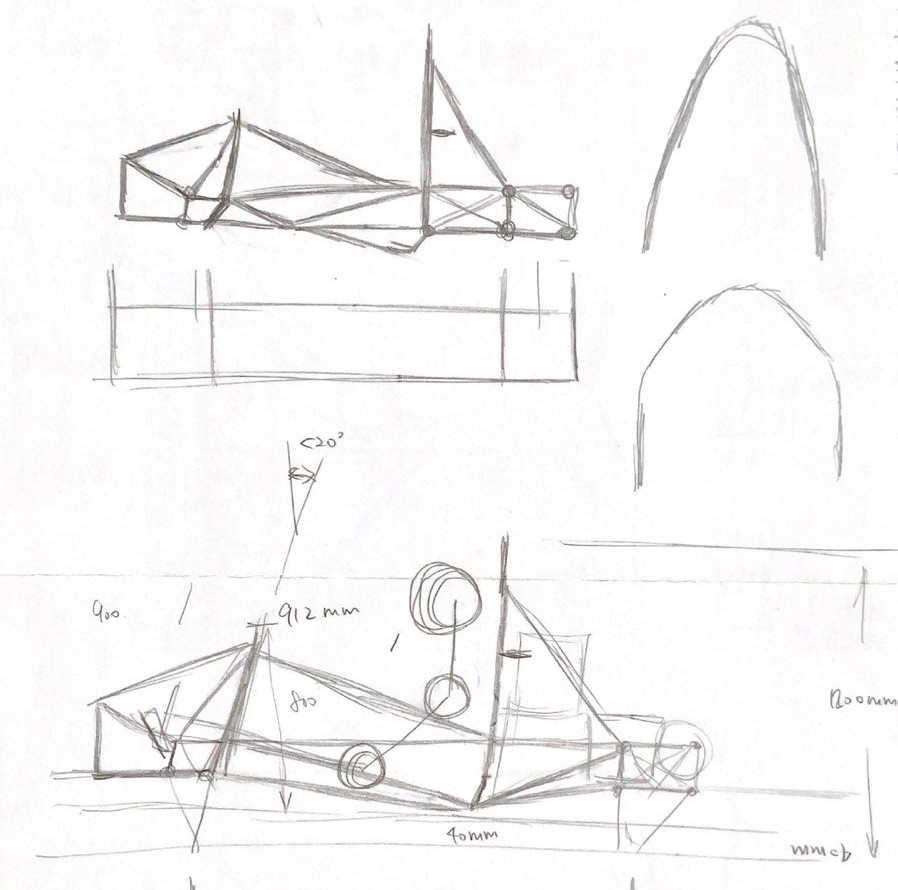 <20°
900
912 mm
800
1200mm
40mm